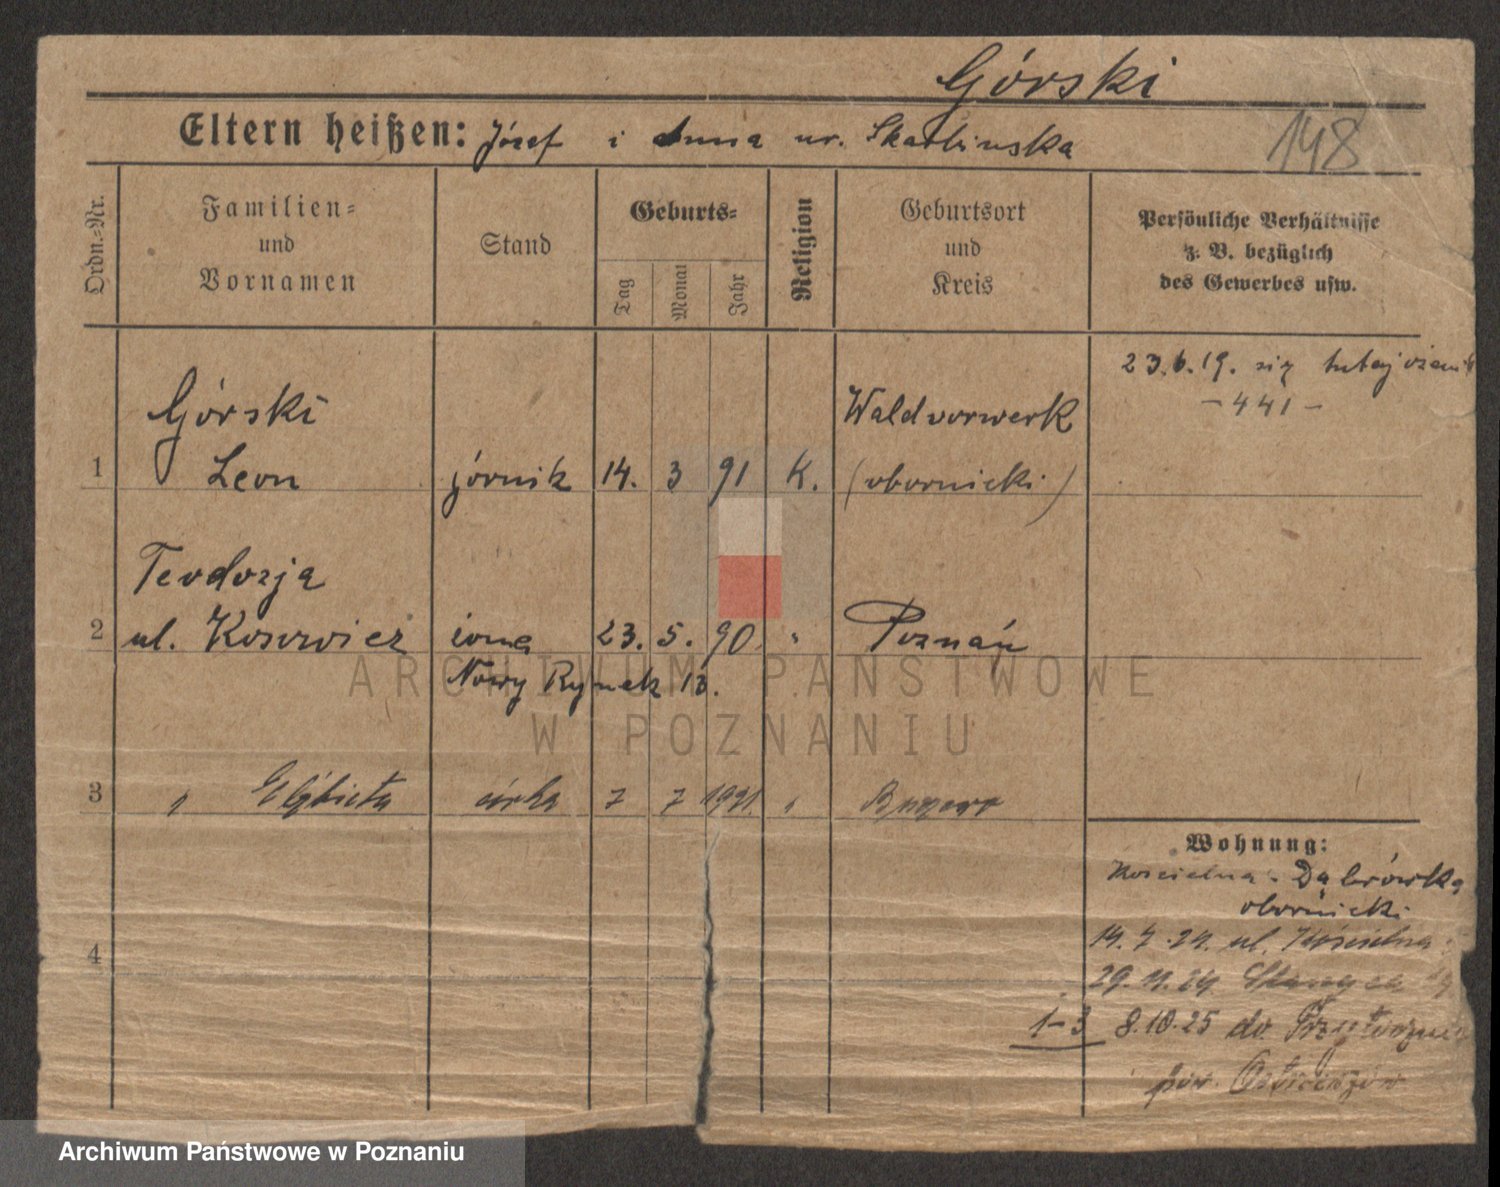 Górski
148
Eltern heißen: Józef i Anna ur. Skarlinska
Ordn.-Nr.
Familien-
und
Vornamen
Stand
Geburts-
Tag
Monat
Jahr
Religion
Geburtsort
und
Kreis
Persönliche Verhältnisse
z. B. bezüglich
des Gewerbes usw.
23.6.19. się tutaj ożenił
-441-
Górski
Waldvorwerk
1 Leon górnik 14. 3 91 K. (obornicki)
Teodozja
2 ul. Kosowicz żona 23. 5. 90. " Poznań
Nowy Rynek 13.
3 " Elżbieta córka 7 7 1921 "
Wohnung:
Koscielna - Dąbrówka
obornicki
4
14.7.24. ul. Kościelna
29.11.24
1-3 8.10.25 do
pow.
ARCHIWUM PAŃSTWOWE
W POZNANIU
Archiwum Państwowe w Poznaniu